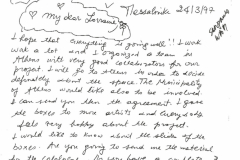 my dear Lorraine
Thessaloniki 24/3/97
I hope that everything is going well! I work
with a lot and I organized a team in
Athens with very good collaborators for our
project. I will go to Athens in order to decide
definately about the space. The Municipality
of Athens would like also to be involved
I can send you then the agreement. I gave
the boxes to more artists and everybody
feels very happy about the project.
I would like to know about the slides of the
boxes. Are you going to send me the material
for the catalogue